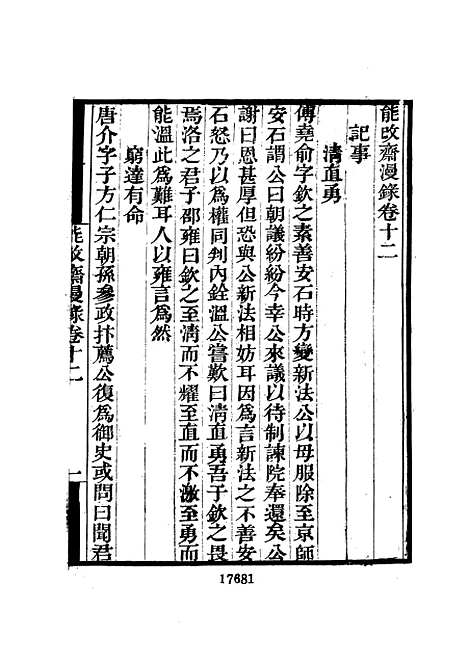 能改齋漫錄卷十二
記事
淸直勇
傅堯俞字欽之素善安石時方變新法公以母服除至京師
安石謂公曰朝議紛紛今幸公來議以待制諫院奉還矣公
謝曰恩甚厚但恐與公新法相妨耳因爲言新法之不善安
石怒乃以爲權同判內銓溫公嘗歎曰淸直勇吾于欽之畏
焉洛之君子邵雍曰欽之至淸而不耀至直而不激至勇而
能溫此爲難耳人以雍言爲然
窮達有命
唐介字子方仁宗朝孫參政抃薦公復爲御史或問曰聞君
能改齋漫錄卷十二
一
17681